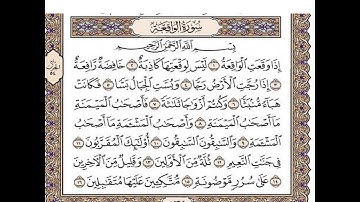 سُورَةُ الوَاقِعَةِ
بِسْمِ ٱللَّهِ ٱلرَّحْمَٰنِ ٱلرَّحِيمِ
إِذَا وَقَعَتِ ٱلْوَاقِعَةُ ١ لَيْسَ لِوَقْعَتِهَا كَاذِبَةٌ ٢ خَافِضَةٌ رَّافِعَةٌ
٣ إِذَا رُجَّتِ ٱلْأَرْضُ رَجًّا ٤ وَبُسَّتِ ٱلْجِبَالُ بَسًّا ٥ فَكَانَتْ
هَبَآءً مُّنۢبَثًّا ٦ وَكُنتُمْ أَزْوَٰجًا ثَلَٰثَةً ٧ فَأَصْحَٰبُ ٱلْمَيْمَنَةِ
مَآ أَصْحَٰبُ ٱلْمَيْمَنَةِ ٨ وَأَصْحَٰبُ ٱلْمَشْـَٔمَةِ مَآ أَصْحَٰبُ
ٱلْمَشْـَٔمَةِ ٩ وَٱلسَّٰبِقُونَ ٱلسَّٰبِقُونَ ١٠ أُو۟لَٰٓئِكَ ٱلْمُقَرَّبُونَ ١١
فِى جَنَّٰتِ ٱلنَّعِيمِ ١٢ ثُلَّةٌ مِّنَ ٱلْأَوَّلِينَ ١٣ وَقَلِيلٌ مِّنَ ٱلْءَاخِرِينَ
١٤ عَلَىٰ سُرُرٍ مَّوْضُونَةٍ ١٥ مُّتَّكِـِٔينَ عَلَيْهَا مُتَقَٰبِلِينَ ١٦